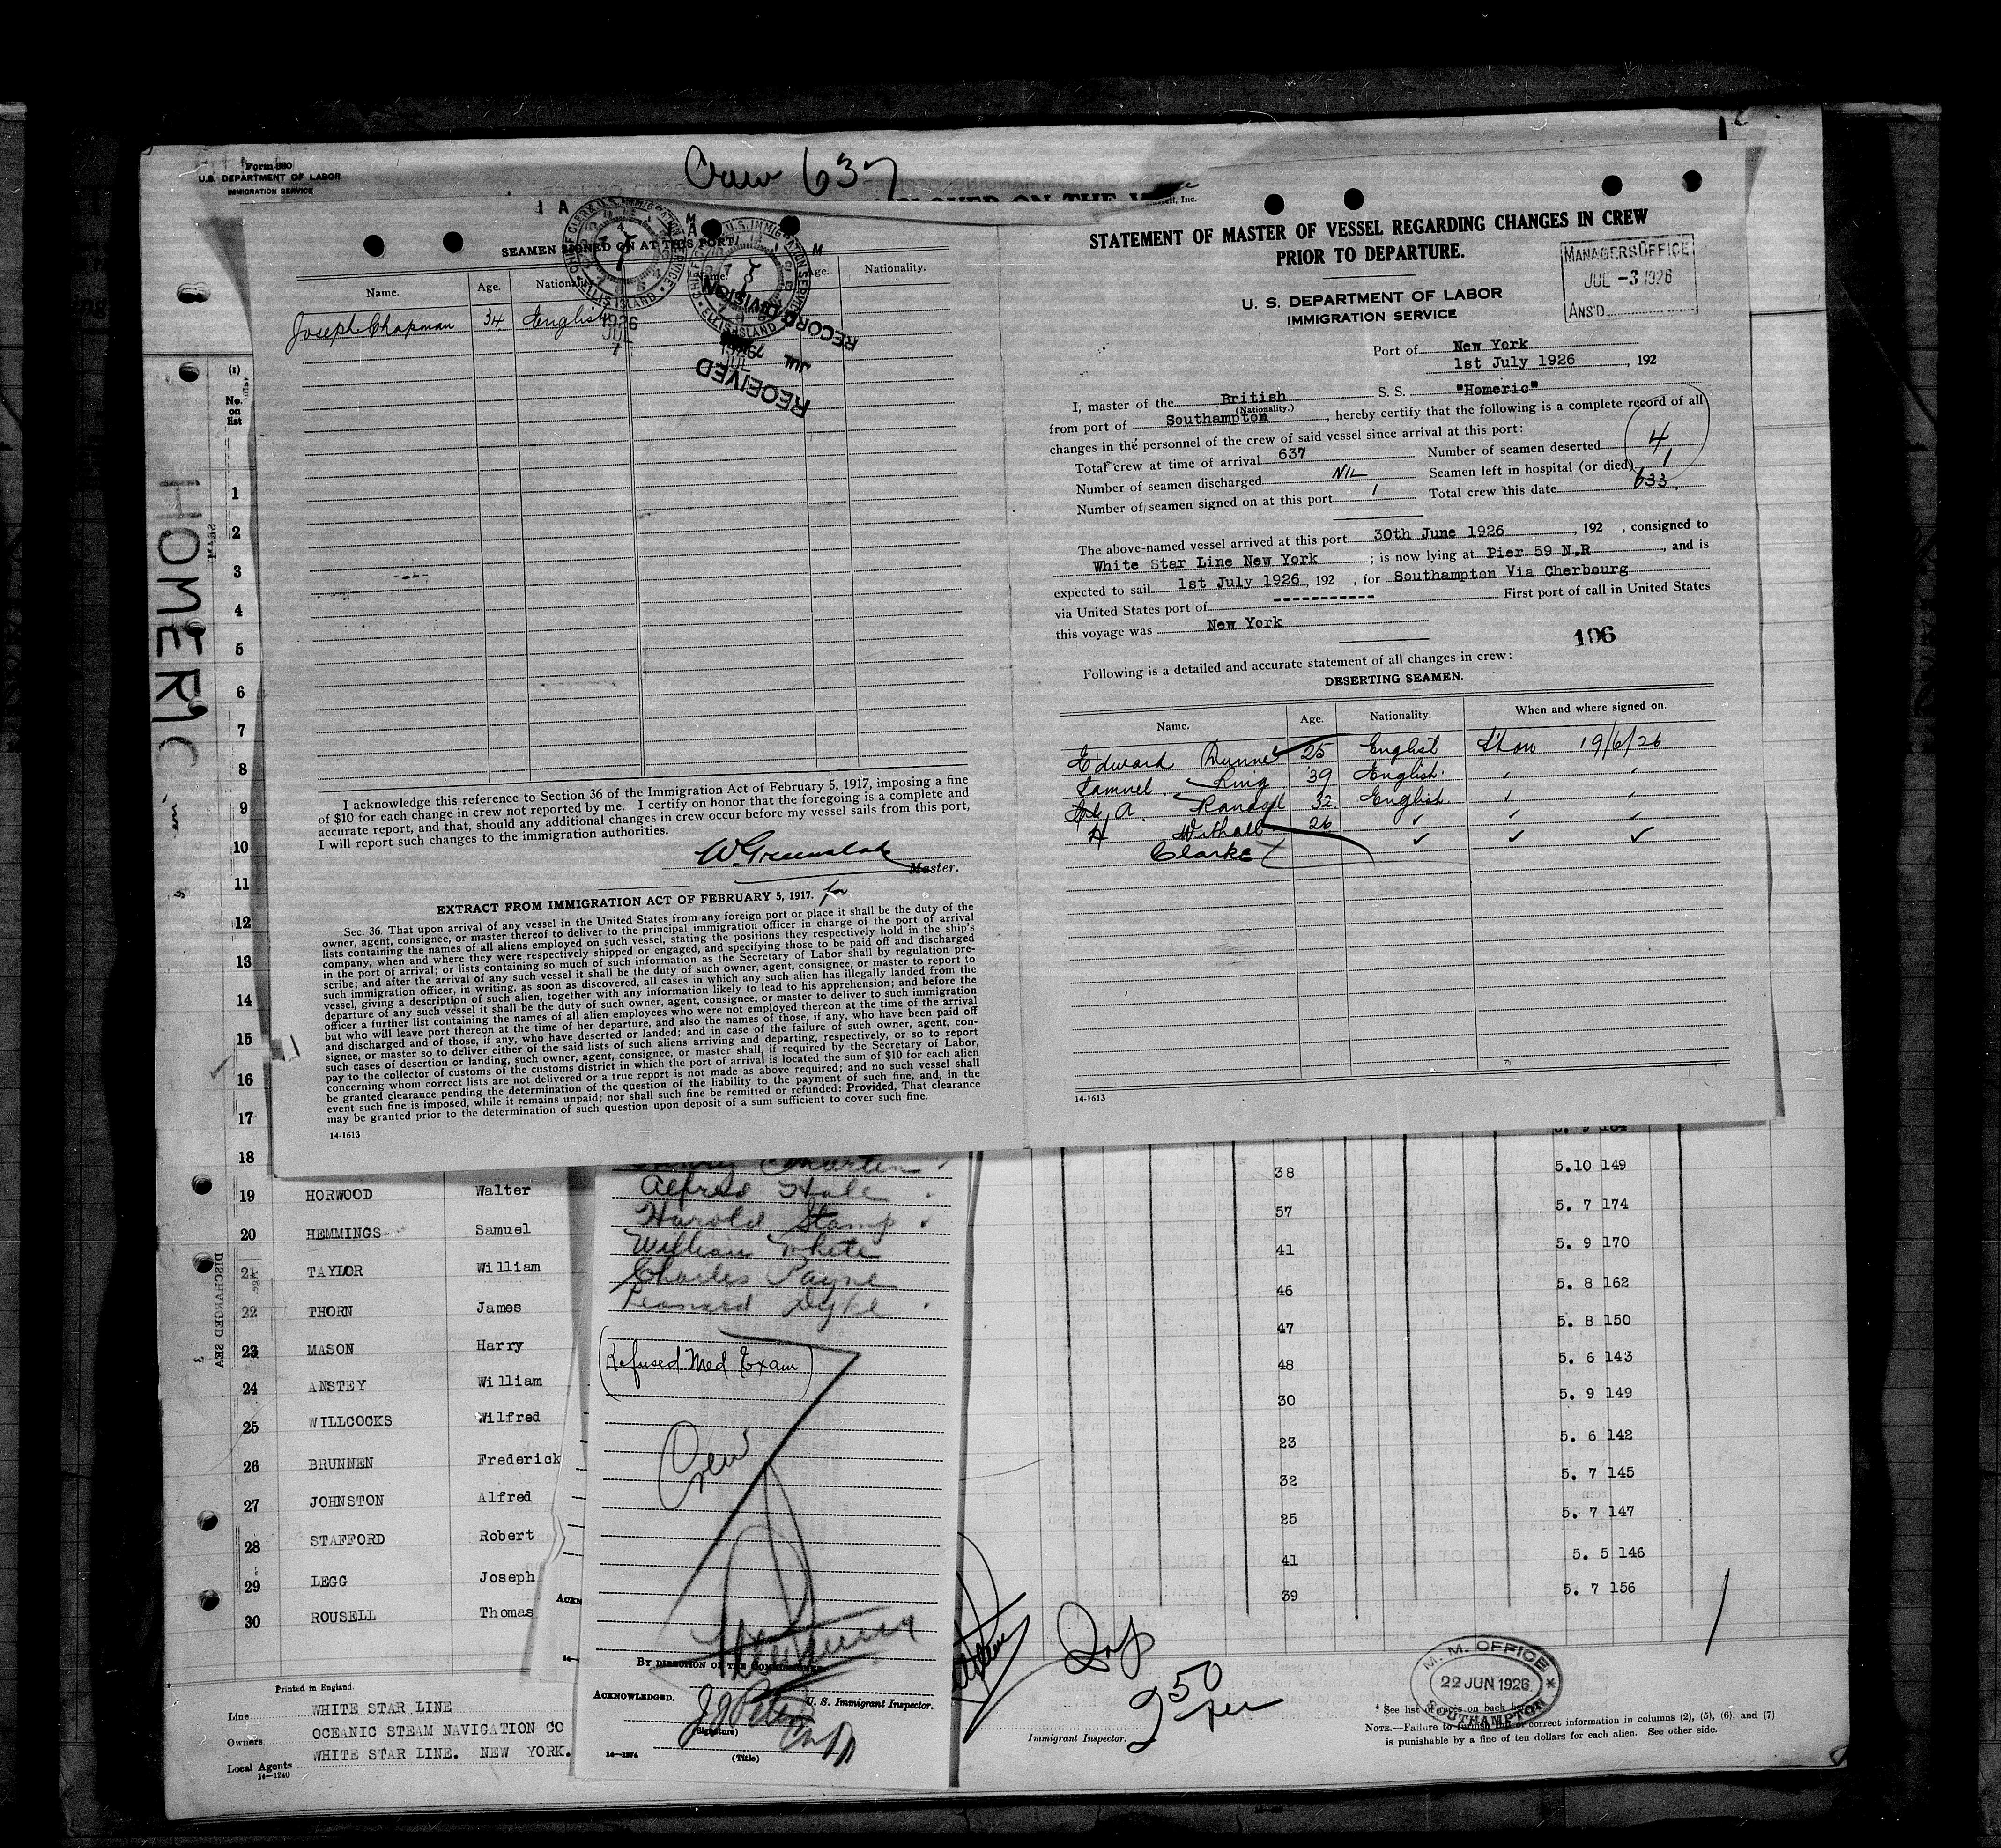 Form 680
U.S. DEPARTMENT OF LABOR
IMMIGRATION SERVICE
Crew 637
HOMERIC
(1)
No.
on
list
1
2
3
4
5
6
7
8
9
10
11
12
13
14
15
16
17
18
SEAMEN SIGNED ON AT THIS PORT
Name. Age. Nationality. Name. Age. Nationality.
Joseph Chapman 34 English
CHIEF CLERK U.S. IMMIGRATION SERVICE
ELLIS ISLAND
1926
JUL
7
RECEIVED
JUL
RECORD DIVISION
I acknowledge this reference to Section 36 of the Immigration Act of February 5, 1917, imposing a fine
of $10 for each change in crew not reported by me. I certify on honor that the foregoing is a complete and
accurate report, and that, should any additional changes in crew occur before my vessel sails from this port,
I will report such changes to the immigration authorities.
Master.
for
EXTRACT FROM IMMIGRATION ACT OF FEBRUARY 5, 1917.
Sec. 36. That upon arrival of any vessel in the United States from any foreign port or place it shall be the duty of the
owner, agent, consignee, or master thereof to deliver to the principal immigration officer in charge of the port of arrival
lists containing the names of all aliens employed on such vessel, stating the positions they respectively hold in the ship's
company, when and where they were respectively shipped or engaged, and specifying those to be paid off and discharged
in the port of arrival; or lists containing so much of such information as the Secretary of Labor shall by regulation pre-
scribe; and after the arrival of any such vessel it shall be the duty of such owner, agent, consignee, or master to report to
such immigration officer, in writing, as soon as discovered, all cases in which any such alien has illegally landed from the
vessel, giving a description of such alien, together with any information likely to lead to his apprehension; and before the
departure of any such vessel it shall be the duty of such owner, agent, consignee, or master to deliver to such immigration
officer a further list containing the names of all alien employees who were not employed thereon at the time of the arrival
but who will leave port thereon at the time of her departure, and also the names of those, if any, who have been paid off
and discharged and of those, if any, who have deserted or landed; and in case of the failure of such owner, agent, con-
signee, or master so to deliver either of the said lists of such aliens arriving and departing, respectively, or so to report
such cases of desertion or landing, such owner, agent, consignee, or master shall, if required by the Secretary of Labor,
pay to the collector of customs of the customs district in which the port of arrival is located the sum of $10 for each alien
concerning whom correct lists are not delivered or a true report is not made as above required; and no such vessel shall
be granted clearance pending the determination of the question of the liability to the payment of such fine, and, in the
event such fine is imposed, while it remains unpaid; nor shall such fine be remitted or refunded: Provided, That clearance
may be granted prior to the determination of such question upon deposit of a sum sufficient to cover such fine.
14-1613
STATEMENT OF MASTER OF VESSEL REGARDING CHANGES IN CREW
PRIOR TO DEPARTURE.
MANAGERS OFFICE
JUL -3 1926
ANS'D
U. S. DEPARTMENT OF LABOR
IMMIGRATION SERVICE
Port of New York
1st July 1926, 192
I, master of the British S. S. "Homeric"
(Nationality.)
from port of Southampton, hereby certify that the following is a complete record of all
changes in the personnel of the crew of said vessel since arrival at this port:
Total crew at time of arrival 637 Number of seamen deserted 4
Number of seamen discharged NIL Seamen left in hospital (or died) 1
Number of seamen signed on at this port 1 Total crew this date 633.
The above-named vessel arrived at this port 30th June 1926, 192 , consigned to
White Star Line New York ; is now lying at Pier 59 N.R , and is
expected to sail 1st July 1926, 192 , for Southampton Via Cherbourg
via United States port of ----------- First port of call in United States
this voyage was New York
106
Following is a detailed and accurate statement of all changes in crew:
DESERTING SEAMEN.
Name. Age. Nationality. When and where signed on.
Edward Dunne 25 English S'hon 19/6/26
Samuel King 39 English.
A. Randall 32 English.
H Withall 26
Clarke
14-1613
Martin
Alfred Hale
Harold Stamp
William White
Charles Payne
Leonard Dyke
(Refused Med Exam)
Crew
BY DIRECTION OF THE COMMISSIONER
U. S. Immigrant Inspector.
ACKNOWLEDGED.
(Signature)
(Title)
14-1274
DISCHARGED SEA
5. 9 164
38 5.10 149
19 HORWOOD Walter 57 5. 7 174
20 HEMMINGS Samuel 41 5. 9 170
21 TAYLOR William 46 5. 8 162
22 THORN James 47 5. 8 150
23 MASON Harry 48 5. 6 143
24 ANSTEY William 30 5. 9 149
25 WILLCOCKS Wilfred 23 5. 6 142
26 BRUNNEN Frederick 32 5. 7 145
27 JOHNSTON Alfred 25 5. 7 147
28 STAFFORD Robert 41 5. 5 146
29 LEGG Joseph 39 5. 7 156
30 ROUSELL Thomas
Printed in England.
Line WHITE STAR LINE
Owners OCEANIC STEAM NAVIGATION CO
Local Agents WHITE STAR LINE. NEW YORK.
14-1240
Immigrant Inspector.
M. M. OFFICE
22 JUN 1926
SOUTHAMPTON
* See list of on back
NOTE.—Failure to furnish full or correct information in columns (2), (5), (6), and (7)
is punishable by a fine of ten dollars for each alien. See other side.